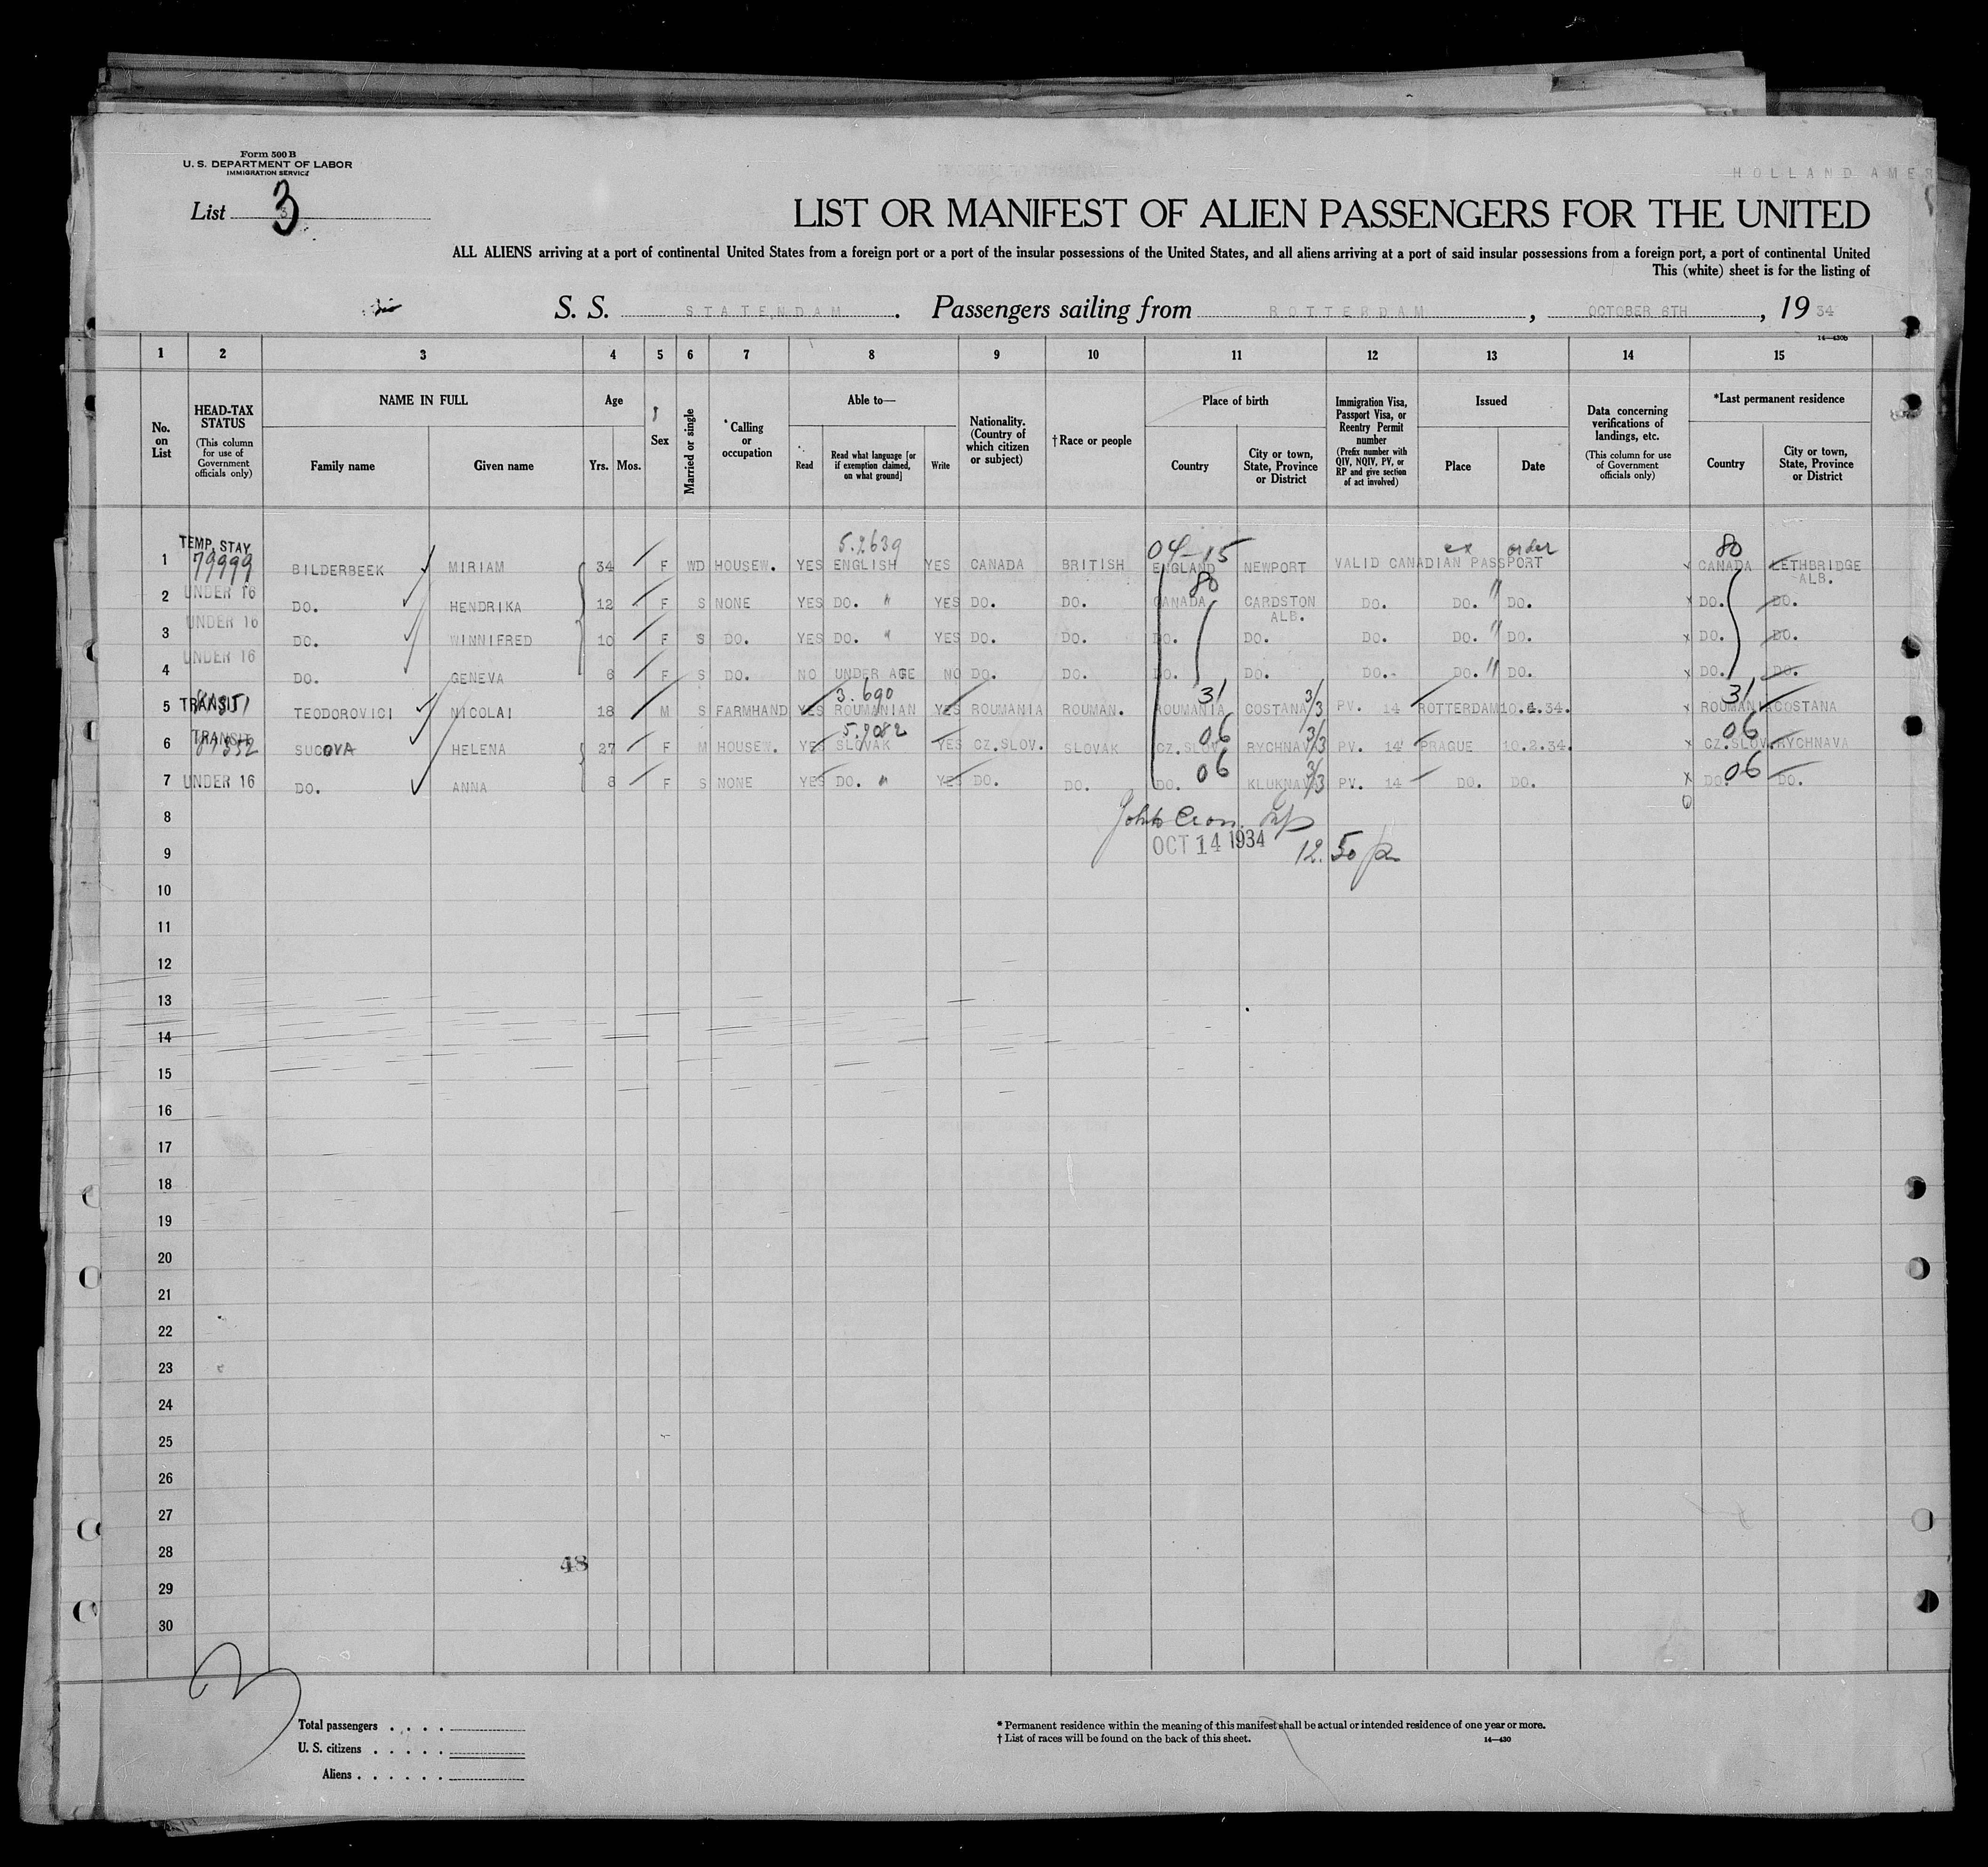 Form 500 B
U. S. DEPARTMENT OF LABOR
IMMIGRATION SERVICE
HOLLAND AMER
List 3
LIST OR MANIFEST OF ALIEN PASSENGERS FOR THE UNITED
ALL ALIENS arriving at a port of continental United States from a foreign port or a port of the insular possessions of the United States, and all aliens arriving at a port of said insular possessions from a foreign port, a port of continental United
This (white) sheet is for the listing of
S. S. STATENDAM. Passengers sailing from ROTTERDAM, OCTOBER 6TH, 19 34
14—430b
1 2 3 4 5 6 7 8 9 10 11 12 13 14 15
No. on List
HEAD-TAX STATUS
(This column for use of Government officials only)
NAME IN FULL
Family name Given name
Age
Yrs. Mos.
Sex
Married or single
Calling or occupation
Able to—
Read
Read what language [or if exemption claimed, on what ground]
Write
Nationality. (Country of which citizen or subject)
†Race or people
Place of birth
Country
City or town, State, Province or District
Immigration Visa, Passport Visa, or Reentry Permit number
(Prefix number with QIV, NQIV, PV, or RP and give section of act involved)
Issued
Place Date
Data concerning verifications of landings, etc.
(This column for use of Government officials only)
*Last permanent residence
Country
City or town, State, Province or District
5.2639 04-15 ex order 80
1 TEMP. STAY 79999 BILDERBEEK MIRIAM 34 F WD HOUSEW. YES ENGLISH YES CANADA BRITISH ENGLAND NEWPORT VALID CANADIAN PASSPORT CANADA LETHBRIDGE ALB.
80
2 UNDER 16 DO. HENDRIKA 12 F S NONE YES DO. " YES DO. DO. CANADA CARDSTON ALB. DO. DO. " DO. DO. DO.
3 UNDER 16 DO. WINNIFRED 10 F S DO. YES DO. " YES DO. DO. DO. DO. DO. DO. " DO. DO. DO.
4 UNDER 16 DO. GENEVA 6 F S DO. NO UNDER AGE NO DO. DO. DO. DO. DO. DO. " DO. DO. DO.
3.690 31 3/3 31
5 TRANSIT TEODOROVICI NICOLAI 18 M S FARMHAND YES ROUMANIAN YES ROUMANIA ROUMAN. ROUMANIA COSTANA PV. 14 ROTTERDAM 10.4.34. ROUMANIA COSTANA
5.9082 06 3/3 06
6 TRANSIT 81352 SUCOVA HELENA 27 F M HOUSEW. YES SLOVAK YES CZ.SLOV. SLOVAK CZ.SLOV. RYCHNAVA PV. 14 PRAGUE 10.2.34. CZ.SLOV. RYCHNAVA
06 3/3 06
7 UNDER 16 DO. ANNA 8 F S NONE YES DO. " YES DO. DO. DO. KLUKNAVA PV. 14 DO. DO. DO. DO.
8
OCT 14 1934
9 12.50
10
11
12
13
14
15
16
17
18
19
20
21
22
23
24
25
26
27
28
48
29
30
Total passengers
U. S. citizens
Aliens
* Permanent residence within the meaning of this manifest shall be actual or intended residence of one year or more.
† List of races will be found on the back of this sheet.
14—430